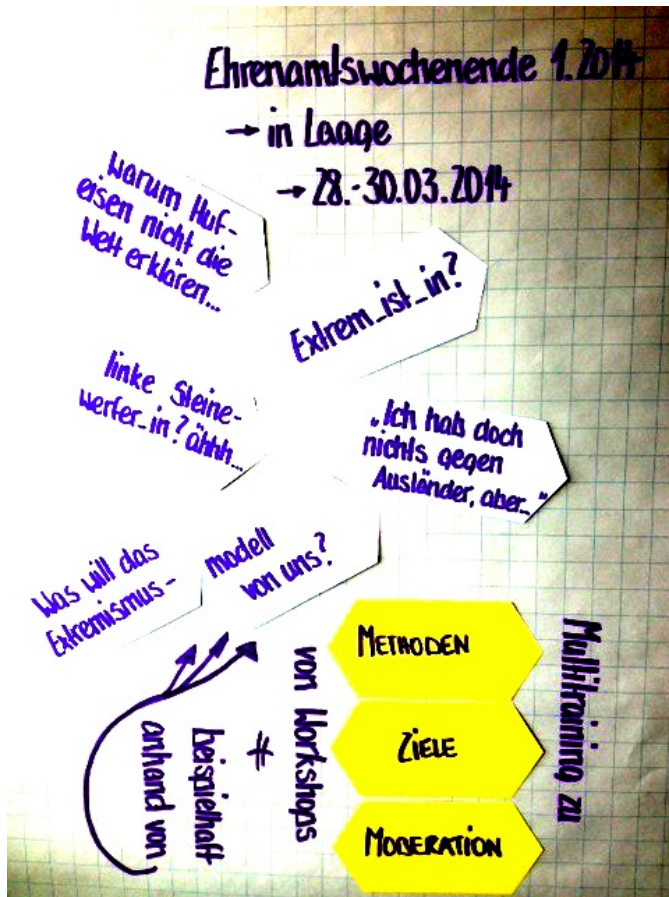 Ehrenamtswochenende 1.2014
→ in Laage
→ 28.-30.03.2014
Warum Huf-
eisen nicht die
Welt erklären...
Extrem_ist_in?
linke Steine-
werfer_in? ähhh...
„Ich hab doch
nichts gegen
Ausländer, aber..."
Was will das
Extremismus-
modell
von uns?
Multitraining zu
METHODEN
ZIELE
MODERATION
von Workshops
*
beispielhaft
anhand von